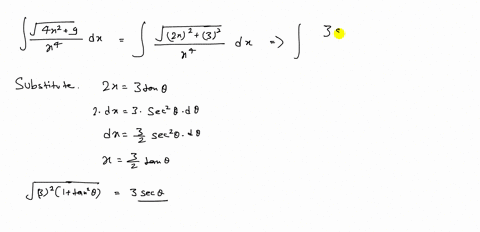 ∫ √(4x² + 9) / x⁴ dx = ∫ √((2x)² + (3)²) / x⁴ dx => ∫ 3 s
Substitute. 2x = 3 tanθ
2. dx = 3. Sec²θ . dθ
dx = 3/2 sec²θ . dθ
x = 3/2 tanθ
√((3)² (1 + tan²θ)) = 3 secθ